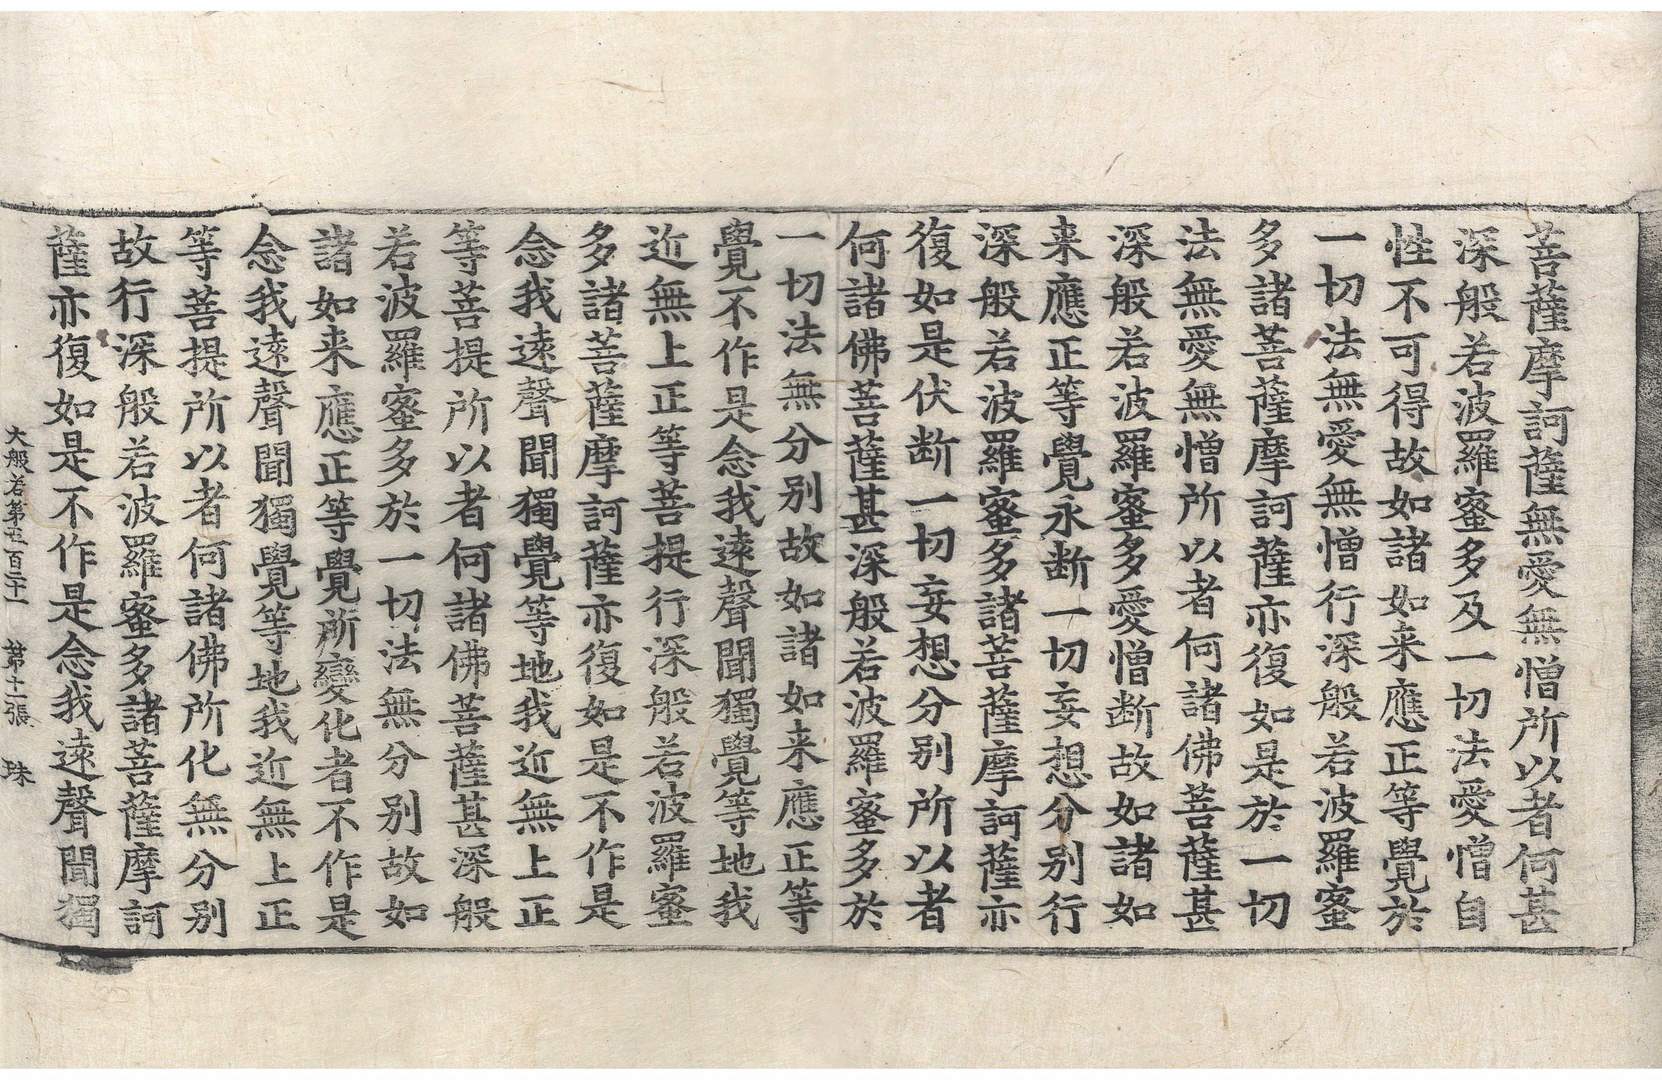 菩薩摩訶薩無愛無憎所以者何甚
深般若波羅蜜多及一切法愛憎自
性不可得故如諸如来應正等覺於
一切法無愛無憎行深般若波羅蜜
多諸菩薩摩訶薩亦復如是於一切
法無愛無憎所以者何諸佛菩薩甚
深般若波羅蜜多愛憎断故如諸如
来應正等覺永断一切妄想分别行
深般若波羅蜜多諸菩薩摩訶薩亦
復如是伏断一切妄想分别所以者
何諸佛菩薩甚深般若波羅蜜多於
一切法無分别故如諸如来應正等
覺不作是念我遠聲聞獨覺等地我
近無上正等菩提行深般若波羅蜜
多諸菩薩摩訶薩亦復如是不作是
念我遠聲聞獨覺等地我近無上正
等菩提所以者何諸佛菩薩甚深般
若波羅蜜多於一切法無分别故如
諸如来應正等覺所變化者不作是
念我遠聲聞獨覺等地我近無上正
等菩提所以者何諸佛所化無分别
故行深般若波羅蜜多諸菩薩摩訶
薩亦復如是不作是念我遠聲聞獨
大般若第五百二十一 第十一張 珠